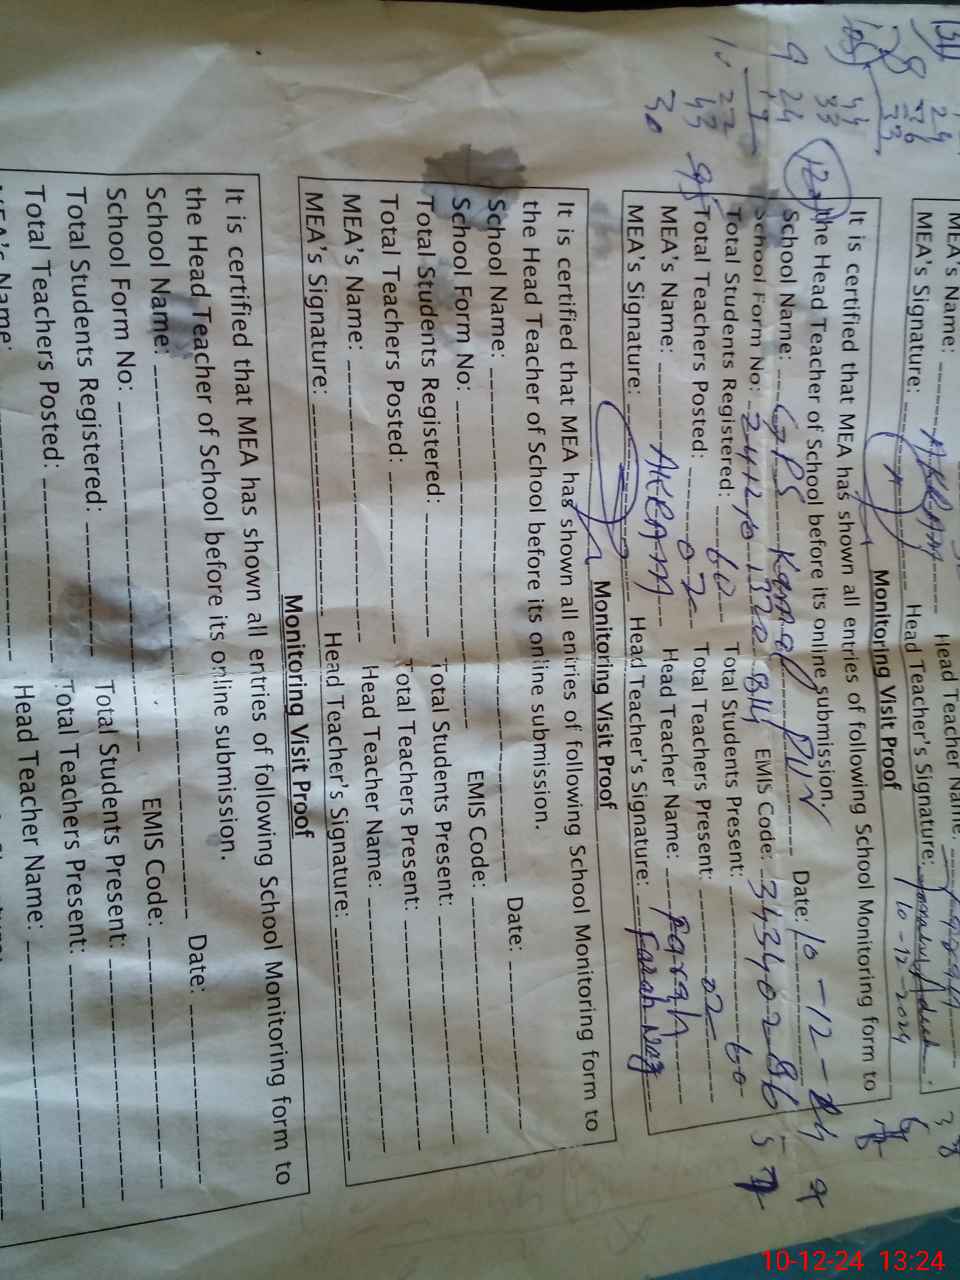 MEA's Name: AKRAM Head Teacher Name:
MEA's Signature: Head Teacher's Signature:
10-12-2024
Monitoring Visit Proof
It is certified that MEA has shown all entries of following School Monitoring form to
the Head Teacher of School before its online submission.
School Name: GPS Kamal Pur Date: 10-12-24
School Form No: EMIS Code:
Total Students Registered: 60 Total Students Present: 60
Total Teachers Posted: 02 Total Teachers Present: 02
MEA's Name: AKRAM Head Teacher Name: Farah
MEA's Signature: Head Teacher's Signature: Farah Naz
Monitoring Visit Proof
It is certified that MEA has shown all entries of following School Monitoring form to
the Head Teacher of School before its online submission.
School Name: Date:
School Form No: EMIS Code:
Total Students Registered: Total Students Present:
Total Teachers Posted: Total Teachers Present:
MEA's Name: Head Teacher Name:
MEA's Signature: Head Teacher's Signature:
Monitoring Visit Proof
It is certified that MEA has shown all entries of following School Monitoring form to
the Head Teacher of School before its online submission.
School Name: Date:
School Form No: EMIS Code:
Total Students Registered: Total Students Present:
Total Teachers Posted: Total Teachers Present:
MEA's Name: Head Teacher Name:
10-12-24 13:24